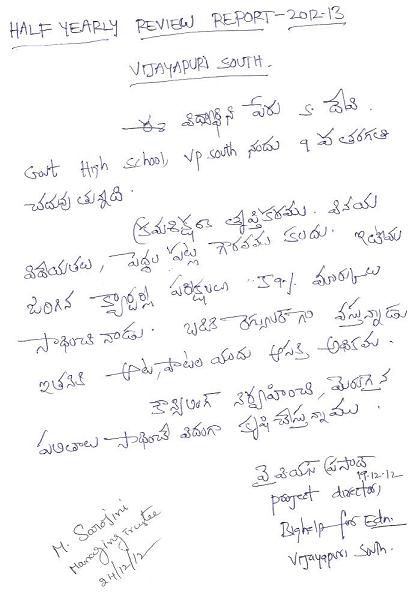 HALF YEARLY REVIEW REPORT-2012-13
VIJAYAPURI SOUTH.
ఈ విద్యార్థిని పేరు S. దేవి.
Govt High School, VP South నందు 9 వ తరగతి
చదువుతున్నది.
క్రమశిక్షణ తృప్తికరము. వినయ
విధేయతలు, పెద్దల పట్ల గౌరవము కలదు. ఇటీవల
జరిగిన క్వార్టర్లీ పరీక్షలలో మార్కులు
సాధించినాడు. బడికి రెగ్యులర్ గా వస్తున్నాడు
ఇతనికి ఆట, పాటల యందు ఆసక్తి అధికము.
కౌన్సిలింగ్ నిర్వహించి, మెరుగైన
ఫలితాలు సాధించే విధంగా కృషి చేస్తున్నాము.
వై ప్రసాద్
19-12-12
project director,
Bighelp for Edn.
Vijayapuri South.
M. Sarojini
Managing Trustee
24/12/12